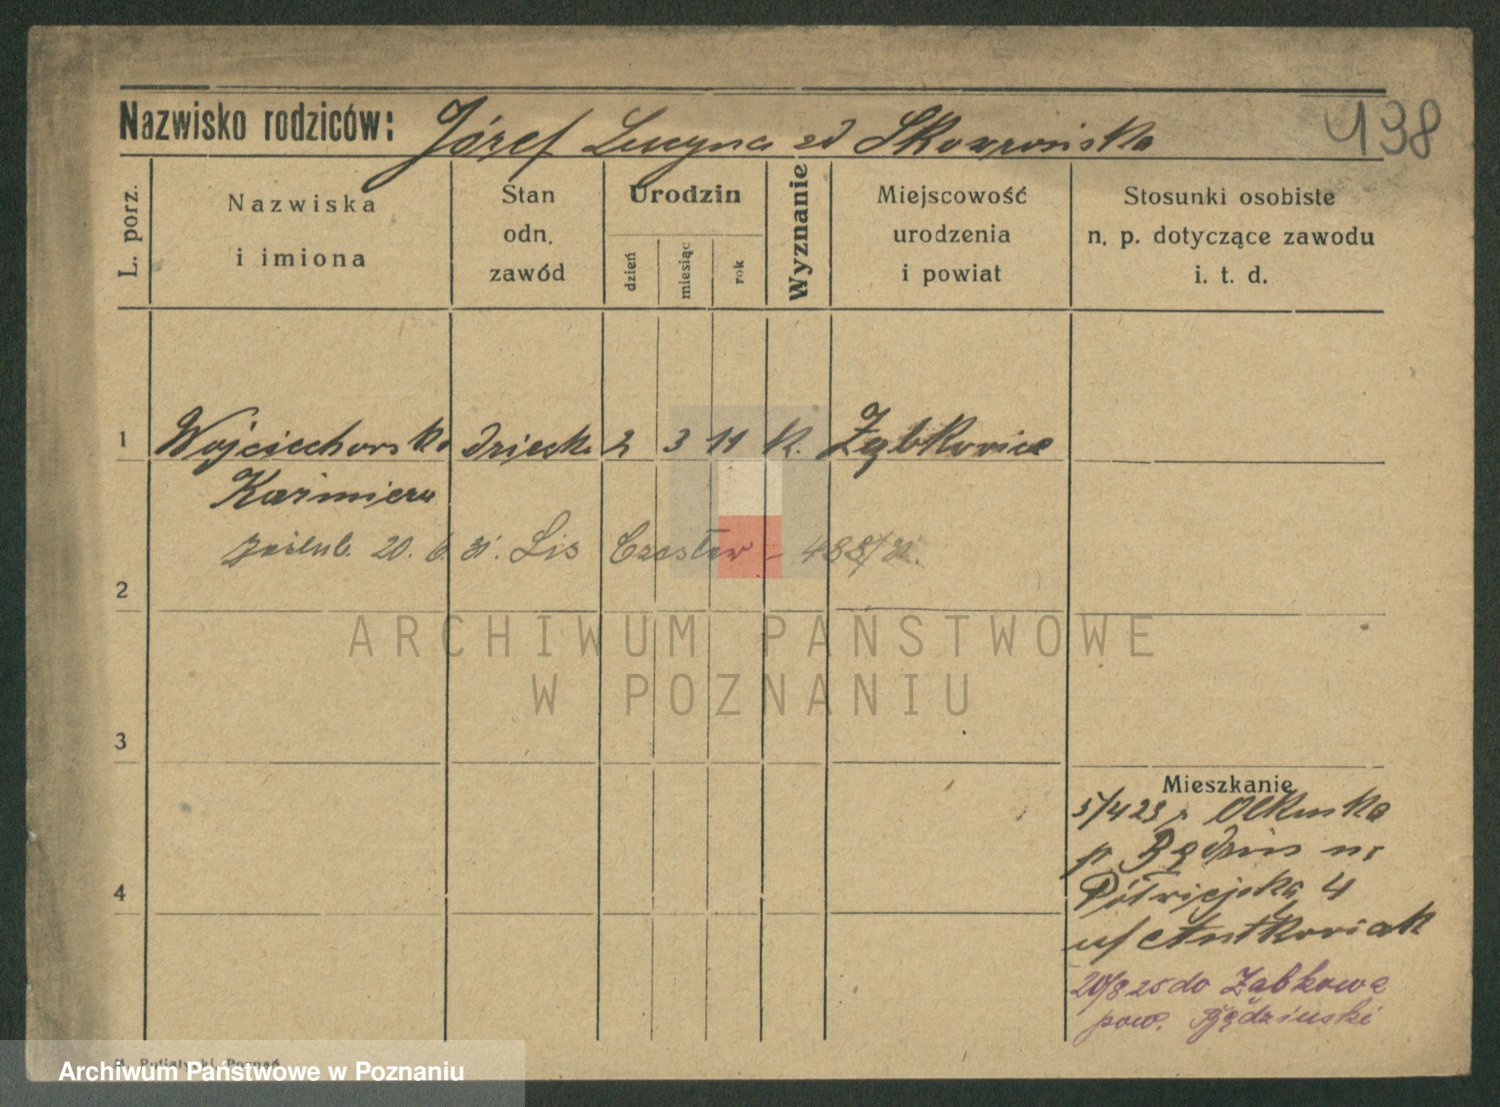 438
Nazwisko rodziców: Józef Lucyna zd Skowrońska
L. porz.
Nazwiska
i imiona
Stan
odn.
zawód
Urodzin
dzień
miesiąc
rok
Wyznanie
Miejscowość
urodzenia
i powiat
Stosunki osobiste
n. p. dotyczące zawodu
i. t. d.
1 Wojciechowska dziecko 2 3 11 K. Ząbkowice
Kazimiera
zaślub. 20. 6. 31. Lis Czesław - 488/31.
2
ARCHIWUM PAŃSTWOWE
W POZNANIU
3
Mieszkanie
5/4 23 z Olkuska
p Będzin nr
Półwiejska 4
u/ Antkowiak
4
20/8 25 do Ząbkowic
pow. Będziński
Poznań
Archiwum Państwowe w Poznaniu